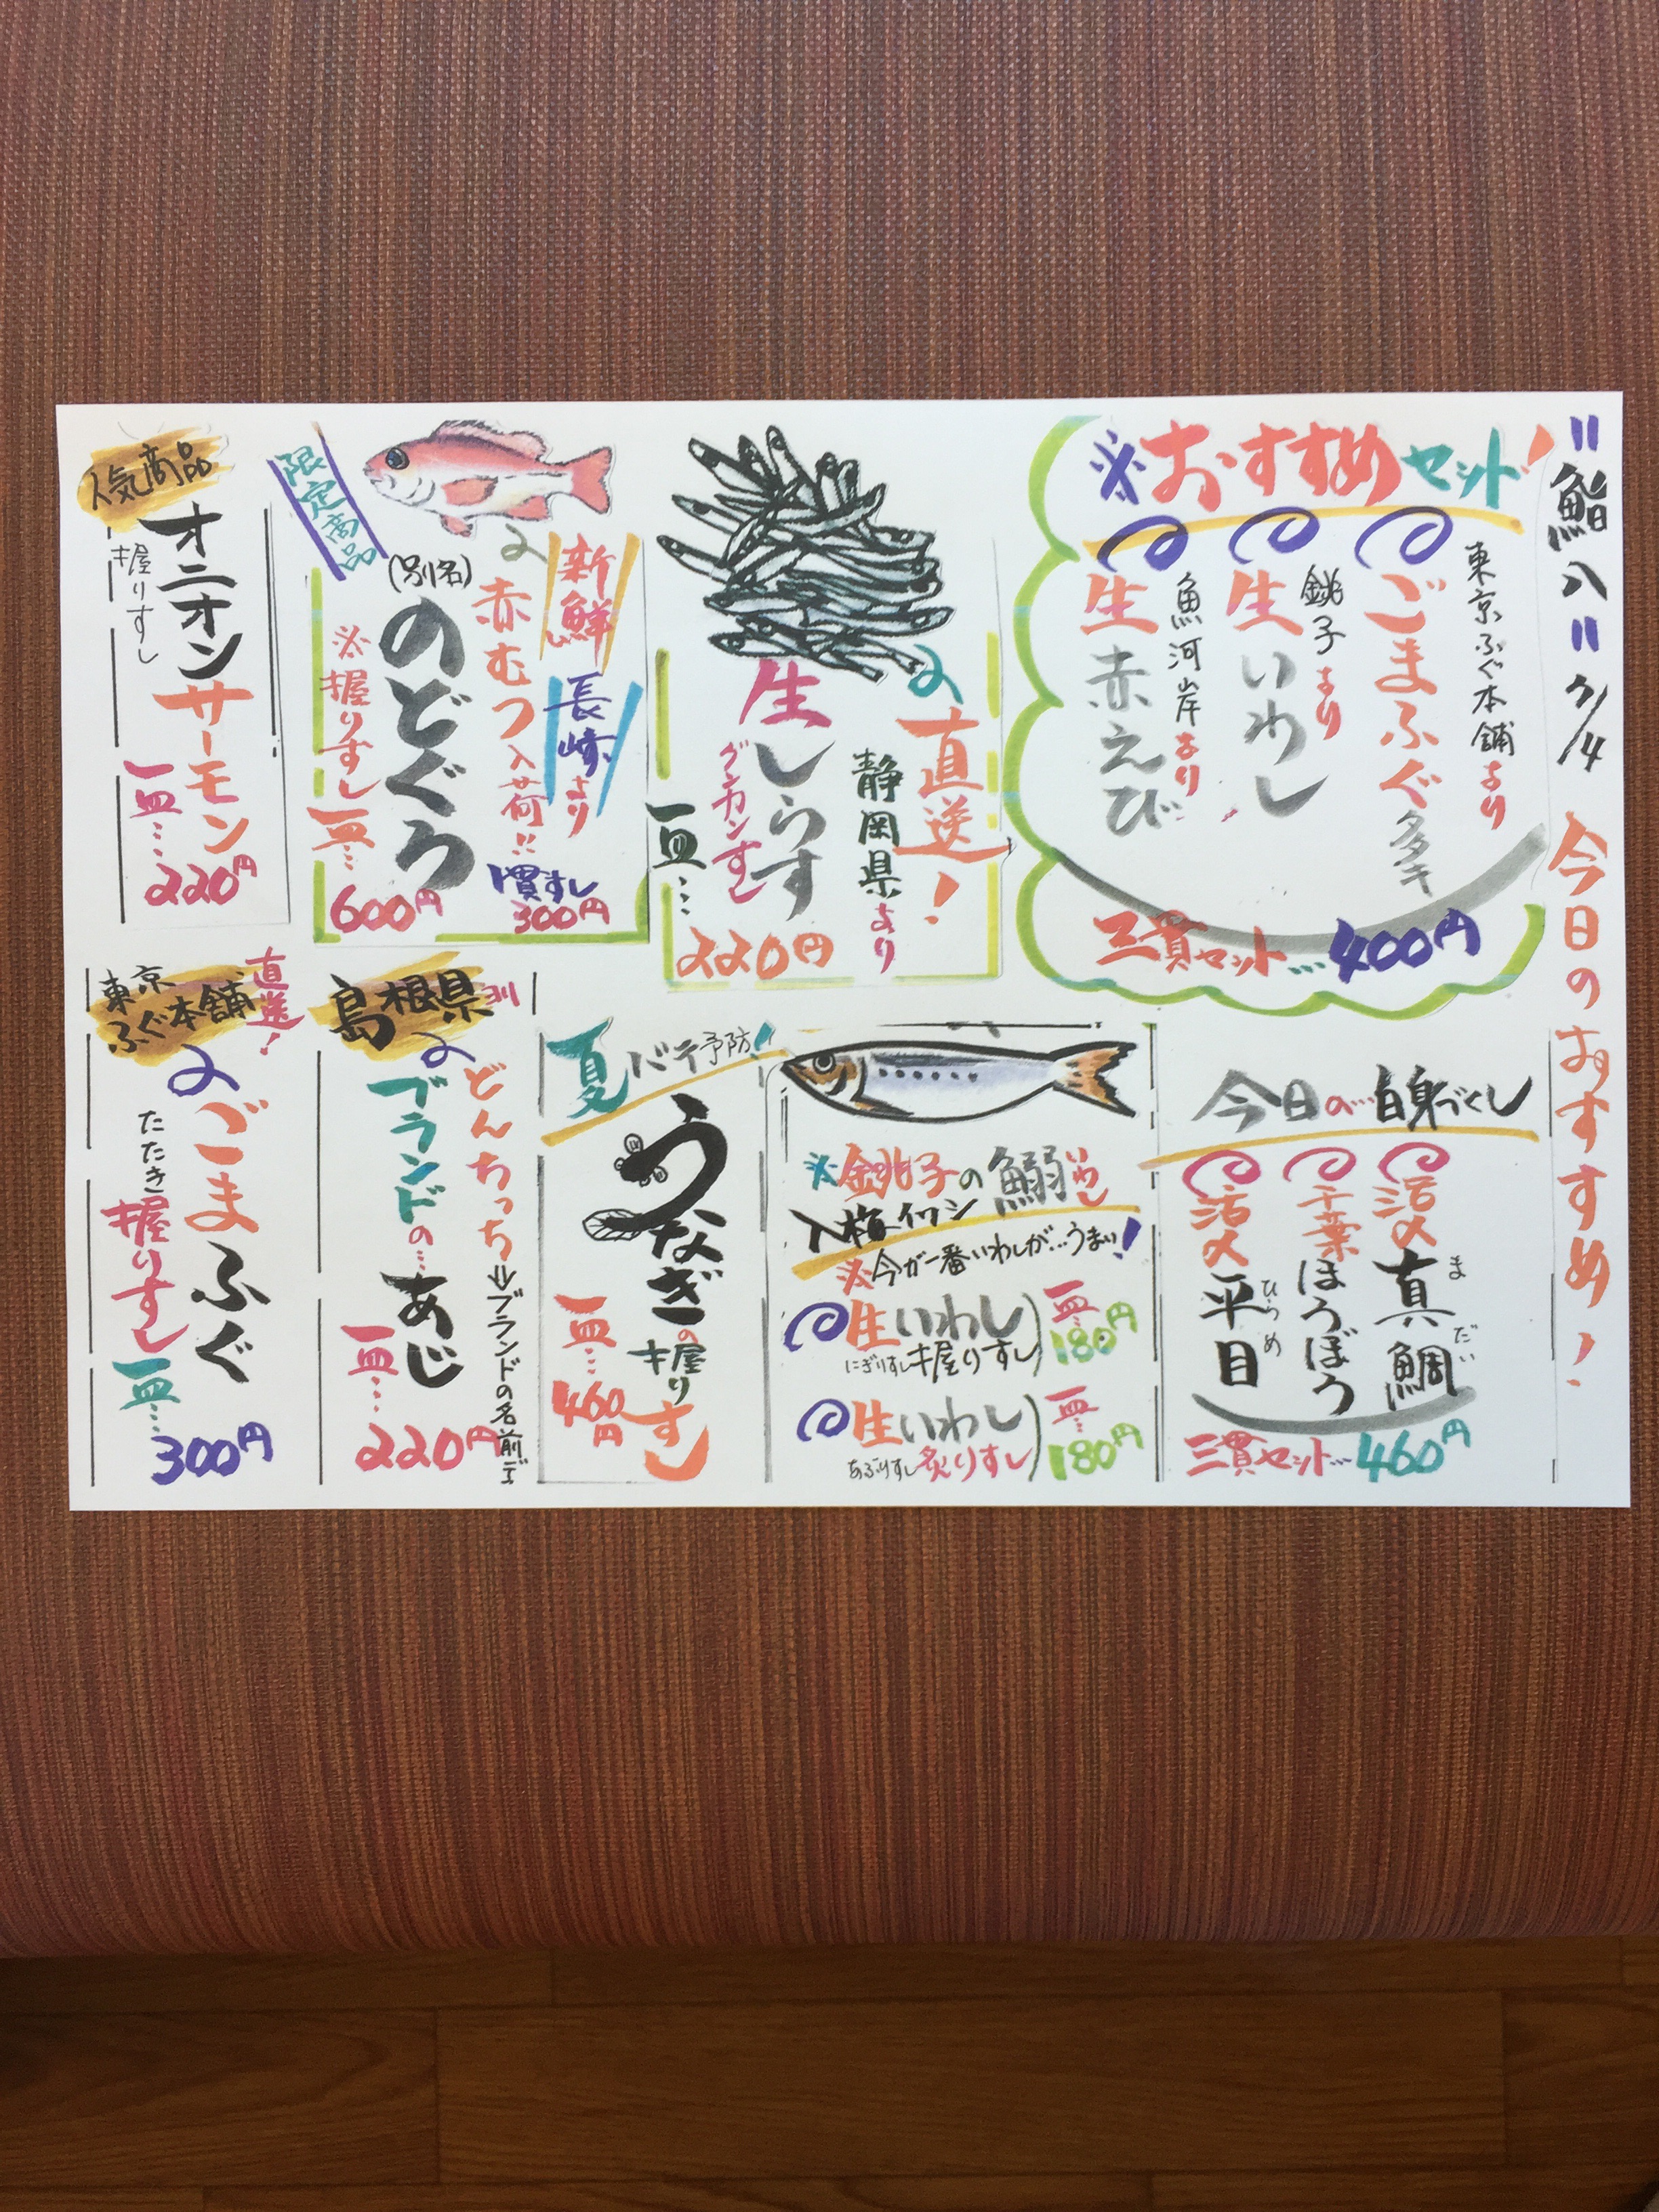 "鮨八" 7/4 今日のおすすめ!
※おすすめセット!
東京ふぐ本舗より
ごまふぐタタキ
銚子より
生いわし
魚河岸より
生赤えび
三貫セット…400円
直送!
静岡県より
生しらす
グンカンすし
一皿…
220円
限定商品
新鮮
長崎より
赤むつ入荷!!
(別名)
のどぐろ
※握りすし
一皿…
600円
1貫すし
300円
人気商品
オニオンサーモン
握りすし
一皿…
220円
今日の…白身づくし
活〆真鯛
まだい
千葉ほうぼう
活〆平目
ひらめ
三貫セット…460円
※銚子の鰯いわし
入梅イワシ
※今が一番いわしが…うまい!
生いわし
にぎりすし握りすし
一皿…
180円
生いわし
あぶりすし炙りすし
一皿…
180円
夏バテ予防!
うなぎの握りすし
一皿…
460円
島根県ヨリ
どんちっち
ブランドの名前デス
ブランドの…あじ
一皿…
220円
東京
ふぐ本舗
直送!
ごまふぐ
たたき
握りすし
一皿…
300円